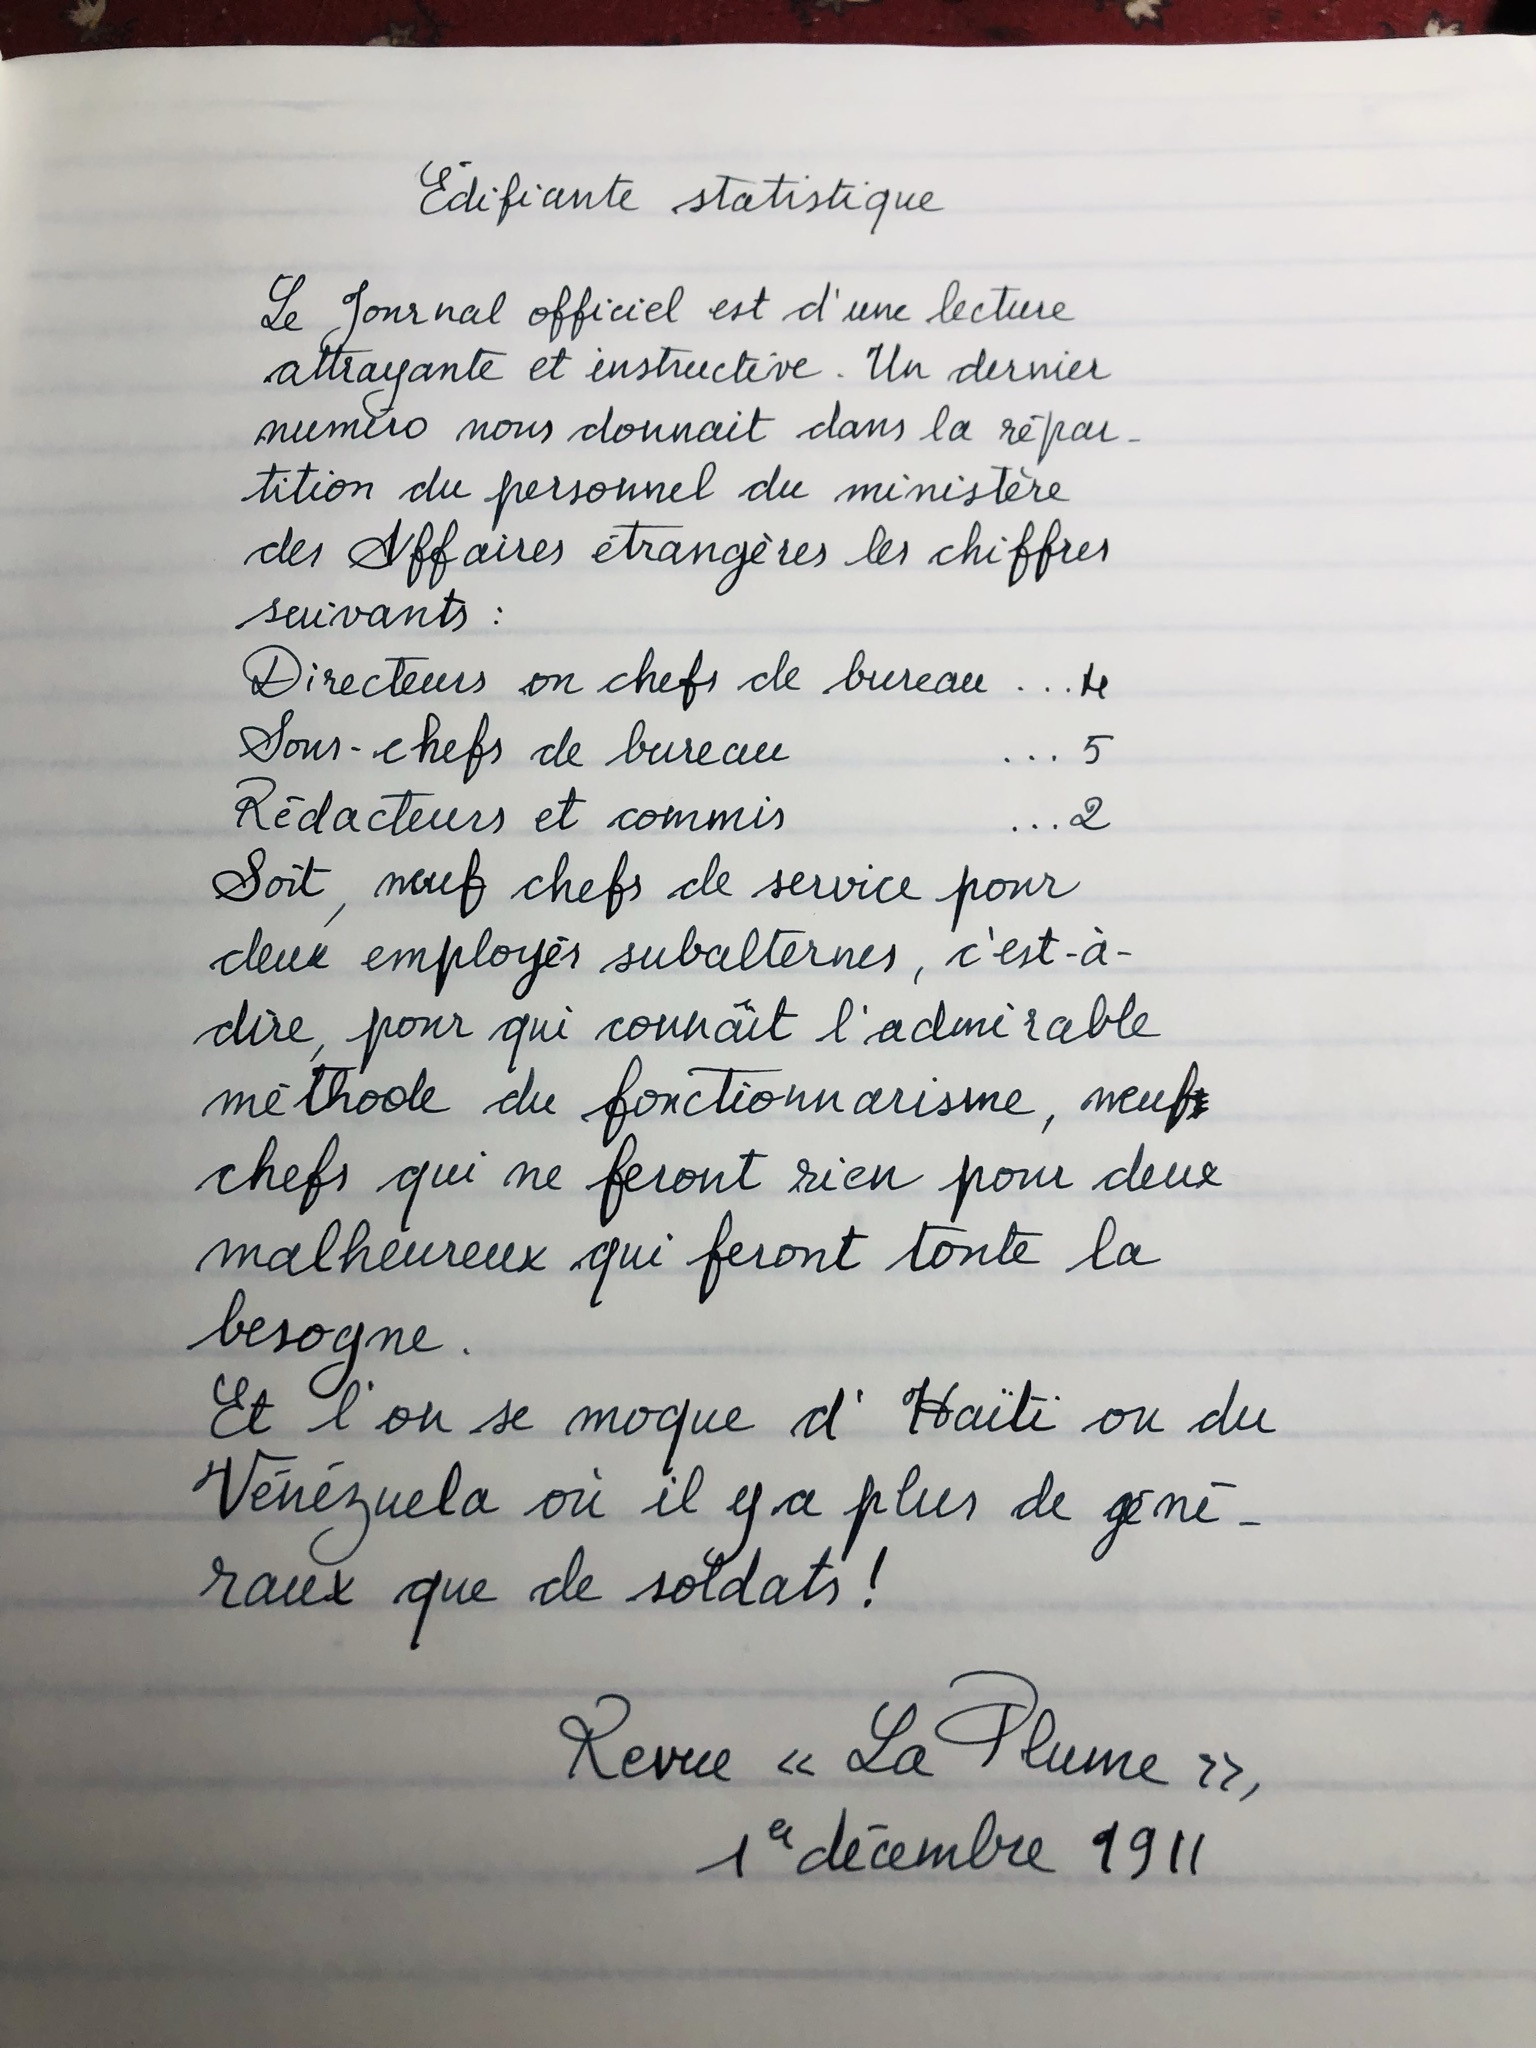 Édifiante statistique
Le Journal officiel est d'une lecture
attrayante et instructive. Un dernier
numéro nous donnait dans la répar-
tition du personnel du ministère
des Affaires étrangères les chiffres
suivants :
Directeurs ou chefs de bureau ... 4
Sous-chefs de bureau ... 5
Rédacteurs et commis ... 2
Soit, neuf chefs de service pour
deux employés subalternes, c'est-à-
dire, pour qui connaît l'admirable
méthode du fonctionnarisme, neuf
chefs qui ne feront rien pour deux
malheureux qui feront toute la
besogne.
Et l'on se moque d'Haïti ou du
Vénézuela où il y a plus de géné-
raux que de soldats !
Revue « La Plume »,
1er décembre 1911